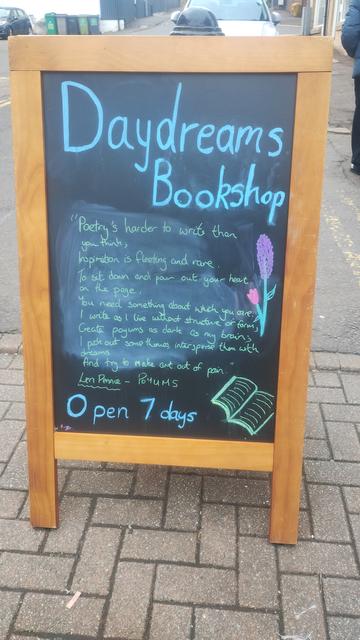 Daydreams
Bookshop
"Poetry's harder to write than
you think,
Inspiration is fleeting and rare.
To sit down and pour out your heart
on the page.
You need something about which you care,
I write as I live without structure or form,
Create poyums as dark as my brain,
I put out some things intersperse them with
dreams
And try to make art out of pain."
Len Pennie - POYUMS
Open 7 days